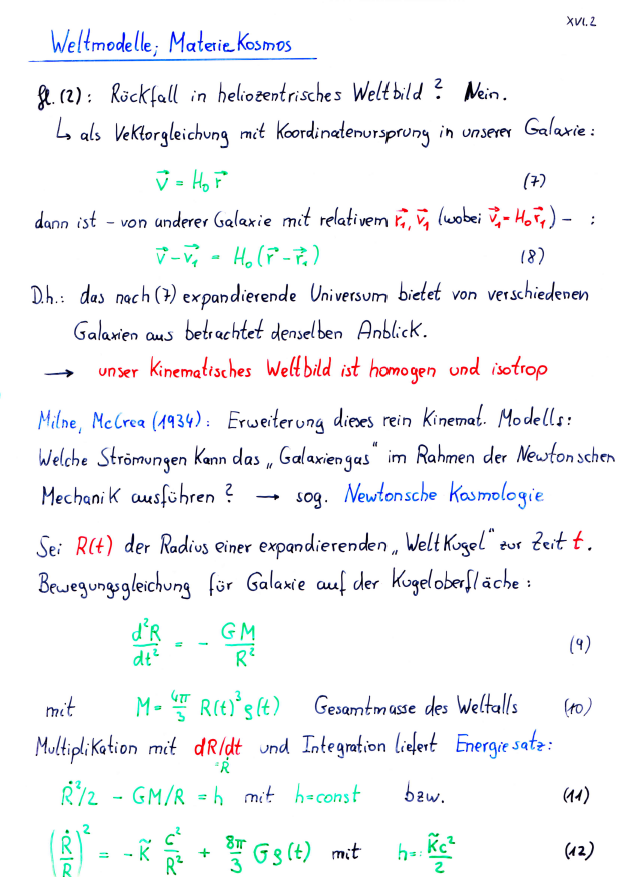 XVI.2
Weltmodelle; Materiekosmos
Gl. (2): Rückfall in heliozentrisches Weltbild? Nein.
↳ als Vektorgleichung mit Koordinatenursprung in unserer Galaxie:
v⃗ = H₀ r⃗ (7)
dann ist – von anderer Galaxie mit relativem r⃗₁, v⃗₁ (wobei v⃗₁ = H₀ r⃗₁) – :
v⃗ - v⃗₁ = H₀ (r⃗ - r⃗₁) (8)
D.h.: das nach (7) expandierende Universum bietet von verschiedenen
Galaxien aus betrachtet denselben Anblick.
→ unser kinematisches Weltbild ist homogen und isotrop
Milne, McCrea (1934): Erweiterung dieses rein kinemat. Modells:
Welche Strömungen kann das „Galaxiengas" im Rahmen der Newtonschen
Mechanik ausführen? → sog. Newtonsche Kosmologie
Sei R(t) der Radius einer expandierenden „Weltkugel" zur Zeit t.
Bewegungsgleichung für Galaxie auf der Kugeloberfläche:
d²R/dt² = - GM/R² (9)
mit M = 4π/3 R(t)³ ρ(t) Gesamtmasse des Weltalls (10)
Multiplikation mit dR/dt und Integration liefert Energiesatz:
=Ṙ
Ṙ²/2 - GM/R = h mit h=const bzw. (11)
(Ṙ/R)² = - k̃ c²/R² + 8π/3 Gρ(t) mit h=: k̃c²/2 (12)